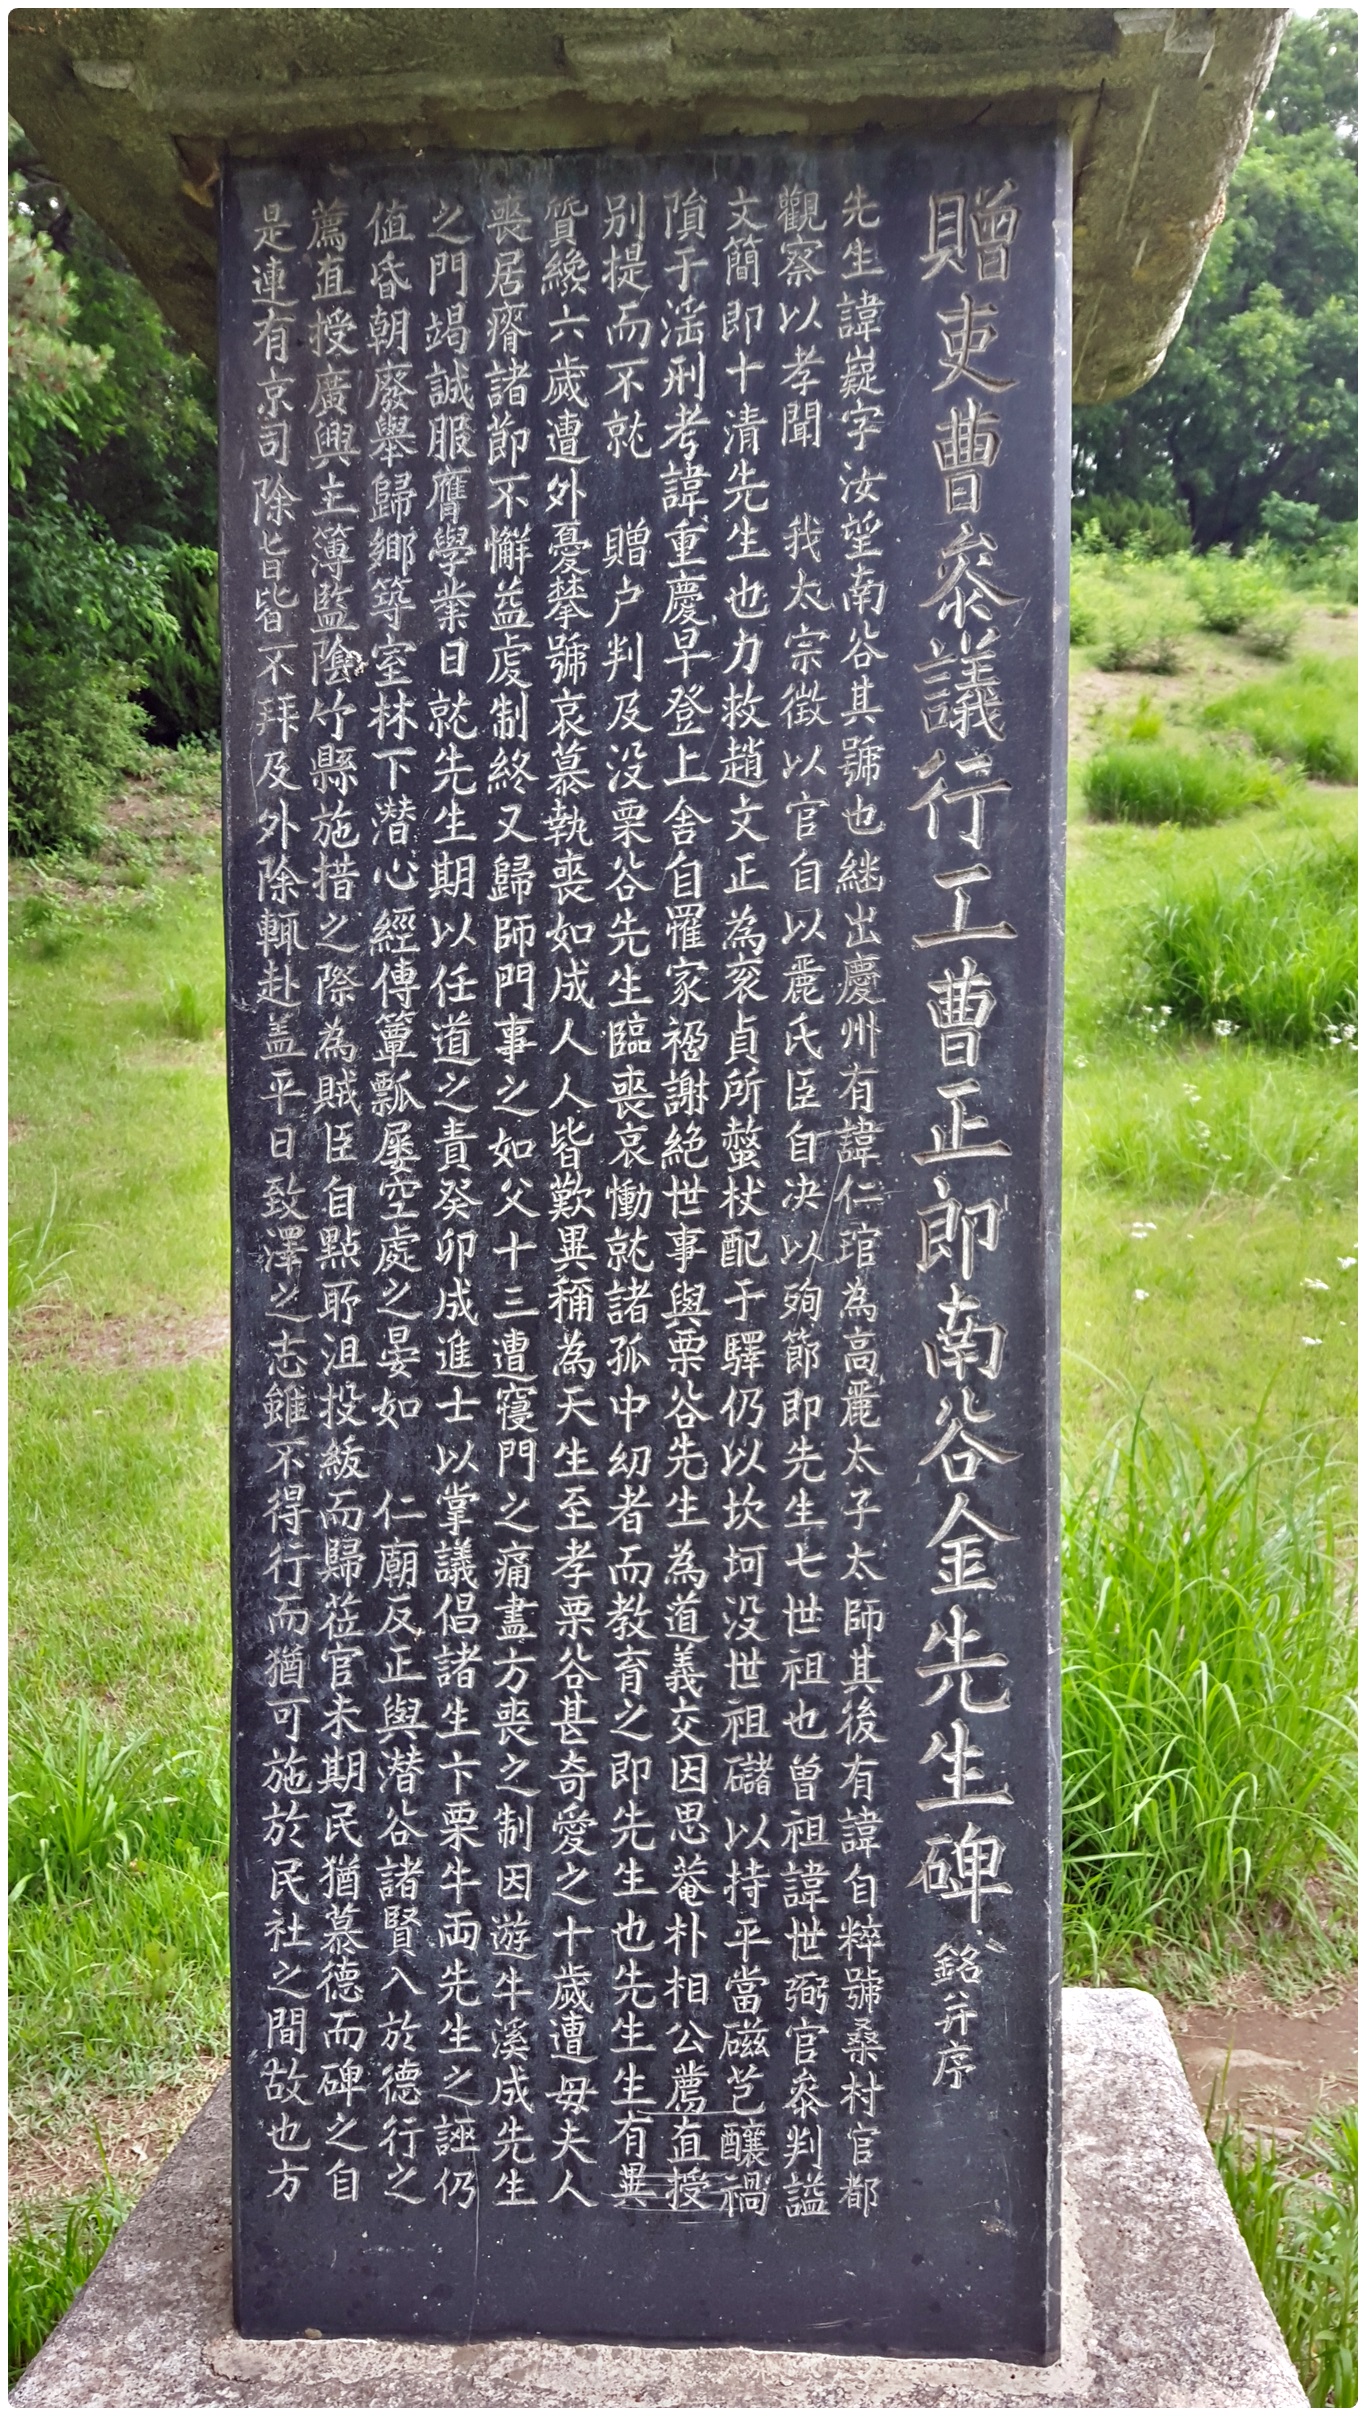 贈吏曹叅議行工曹正郎南谷金先生碑 銘幷序
先生諱嶷字汝望南谷其號也継出慶州有諱仁琯為高麗太子太師其後有諱自粹號桑村官都
觀察以孝聞 我太宗徵以官自以麗氏臣自决以殉節即先生七世祖也曾祖諱世弼官叅判諡
文簡即十清先生也力救趙文正為衮貞所螫杖配于驛仍以坎坷没世祖礛以持平當磁芑釀禍
隕于滛刑考諱重慶早登上舍自罹家禍謝絶世事與栗谷先生為道義交因思菴朴相公薦直授
别提而不就 贈户判及没栗谷先生臨喪哀慟就諸孤中㓜者而教育之即先生也先生生有異
質纔六歲遭外憂攀號哀慕執喪如成人人皆歎異稱為天生至孝栗谷甚奇愛之十歲遭毋夫人
喪居瘠諸節不懈益虔制終又歸師門事之如父十三遭寢門之痛盡方喪之制因遊牛溪成先生
之門竭誠服膺學業日就先生期以任道之責癸卯成進士以掌議倡諸生卞栗牛両先生之誣仍
值昏朝廢舉歸鄉等室林下潜心經傳簞瓢屢空處之晏如 仁廟反正與潜谷諸賢入於德行之
薦直授廣興主簿監陰竹縣施措之際為賊臣自點所沮投紱而歸莅官未期民猶慕德而碑之自
是連有京司除旨皆不拜及外除輒赴盖平日致澤之志雖不得行而猶可施於民社之間故也方